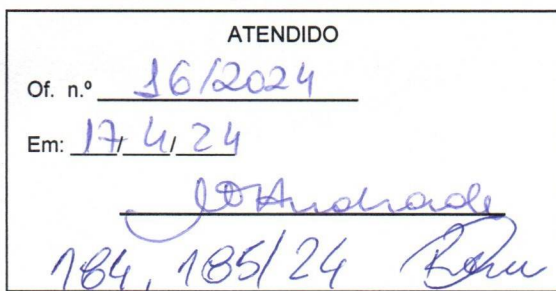 ATENDIDO
Of. n.º 16/2024
Em: 17/4/24
Andrade
184, 185/24